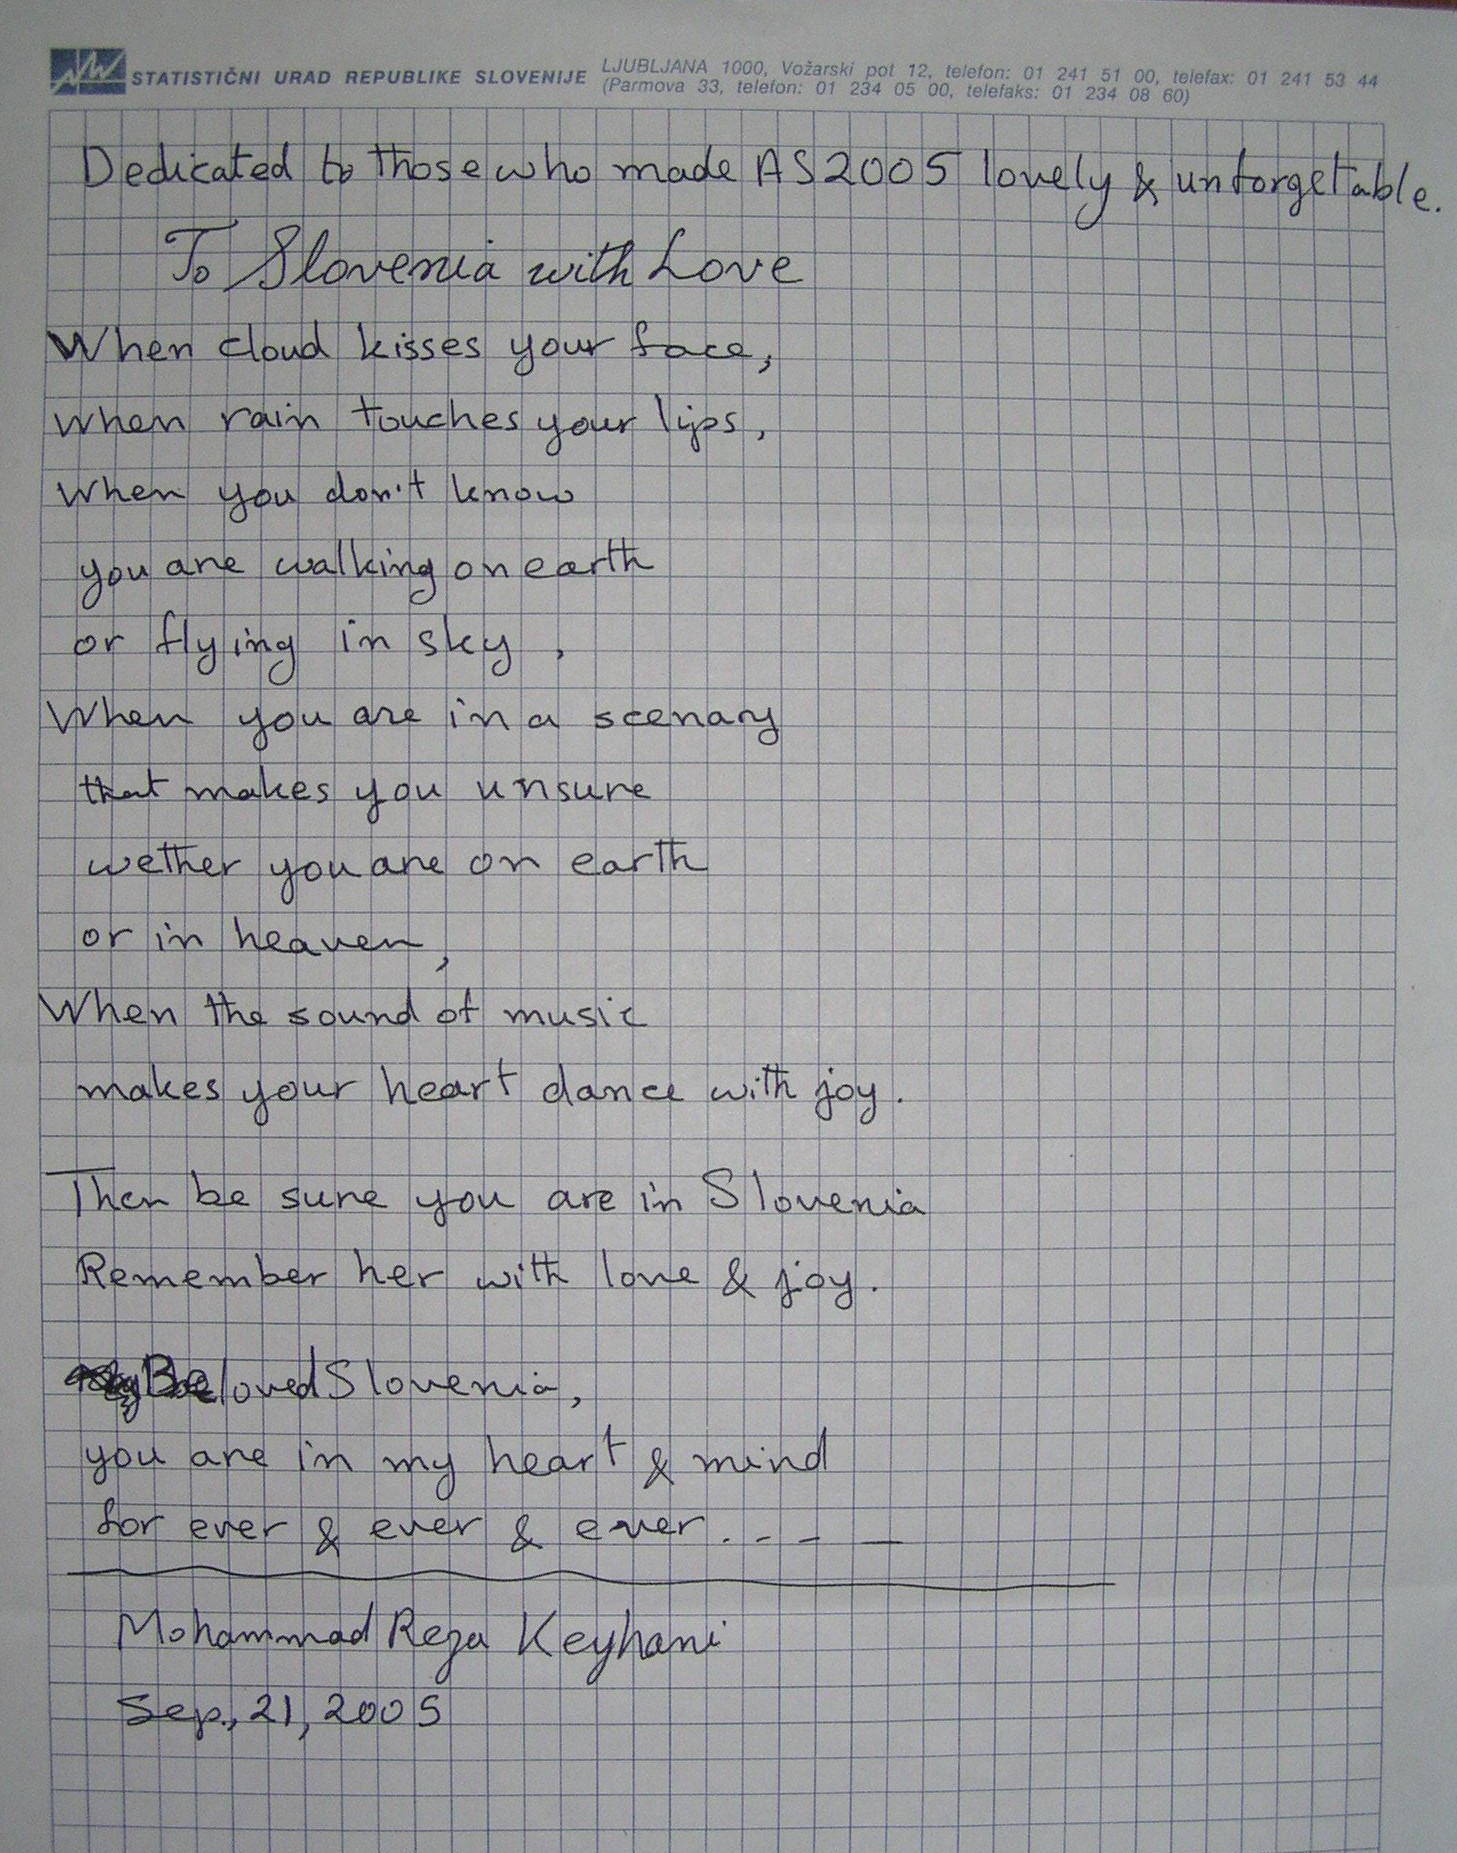 STATISTIČNI URAD REPUBLIKE SLOVENIJE
LJUBLJANA 1000, Vožarski pot 12, telefon: 01 241 51 00, telefax: 01 241 53 44
(Parmova 33, telefon: 01 234 05 00, telefaks: 01 234 08 60)
Dedicated to those who made AS2005 lovely & unforgetable.
To Slovenia with Love
When cloud kisses your face,
When rain touches your lips,
When you don't know
you are walking on earth
or flying in sky,
When you are in a scenary
that makes you unsure
wether you are on earth
or in heaven,
When the sound of music
makes your heart dance with joy.
Then be sure you are in Slovenia
Remember her with love & joy.
Beloved Slovenia,
you are in my heart & mind
for ever & ever & ever . - - —
Mohammad Reza Keyhani
Sep., 21, 2005